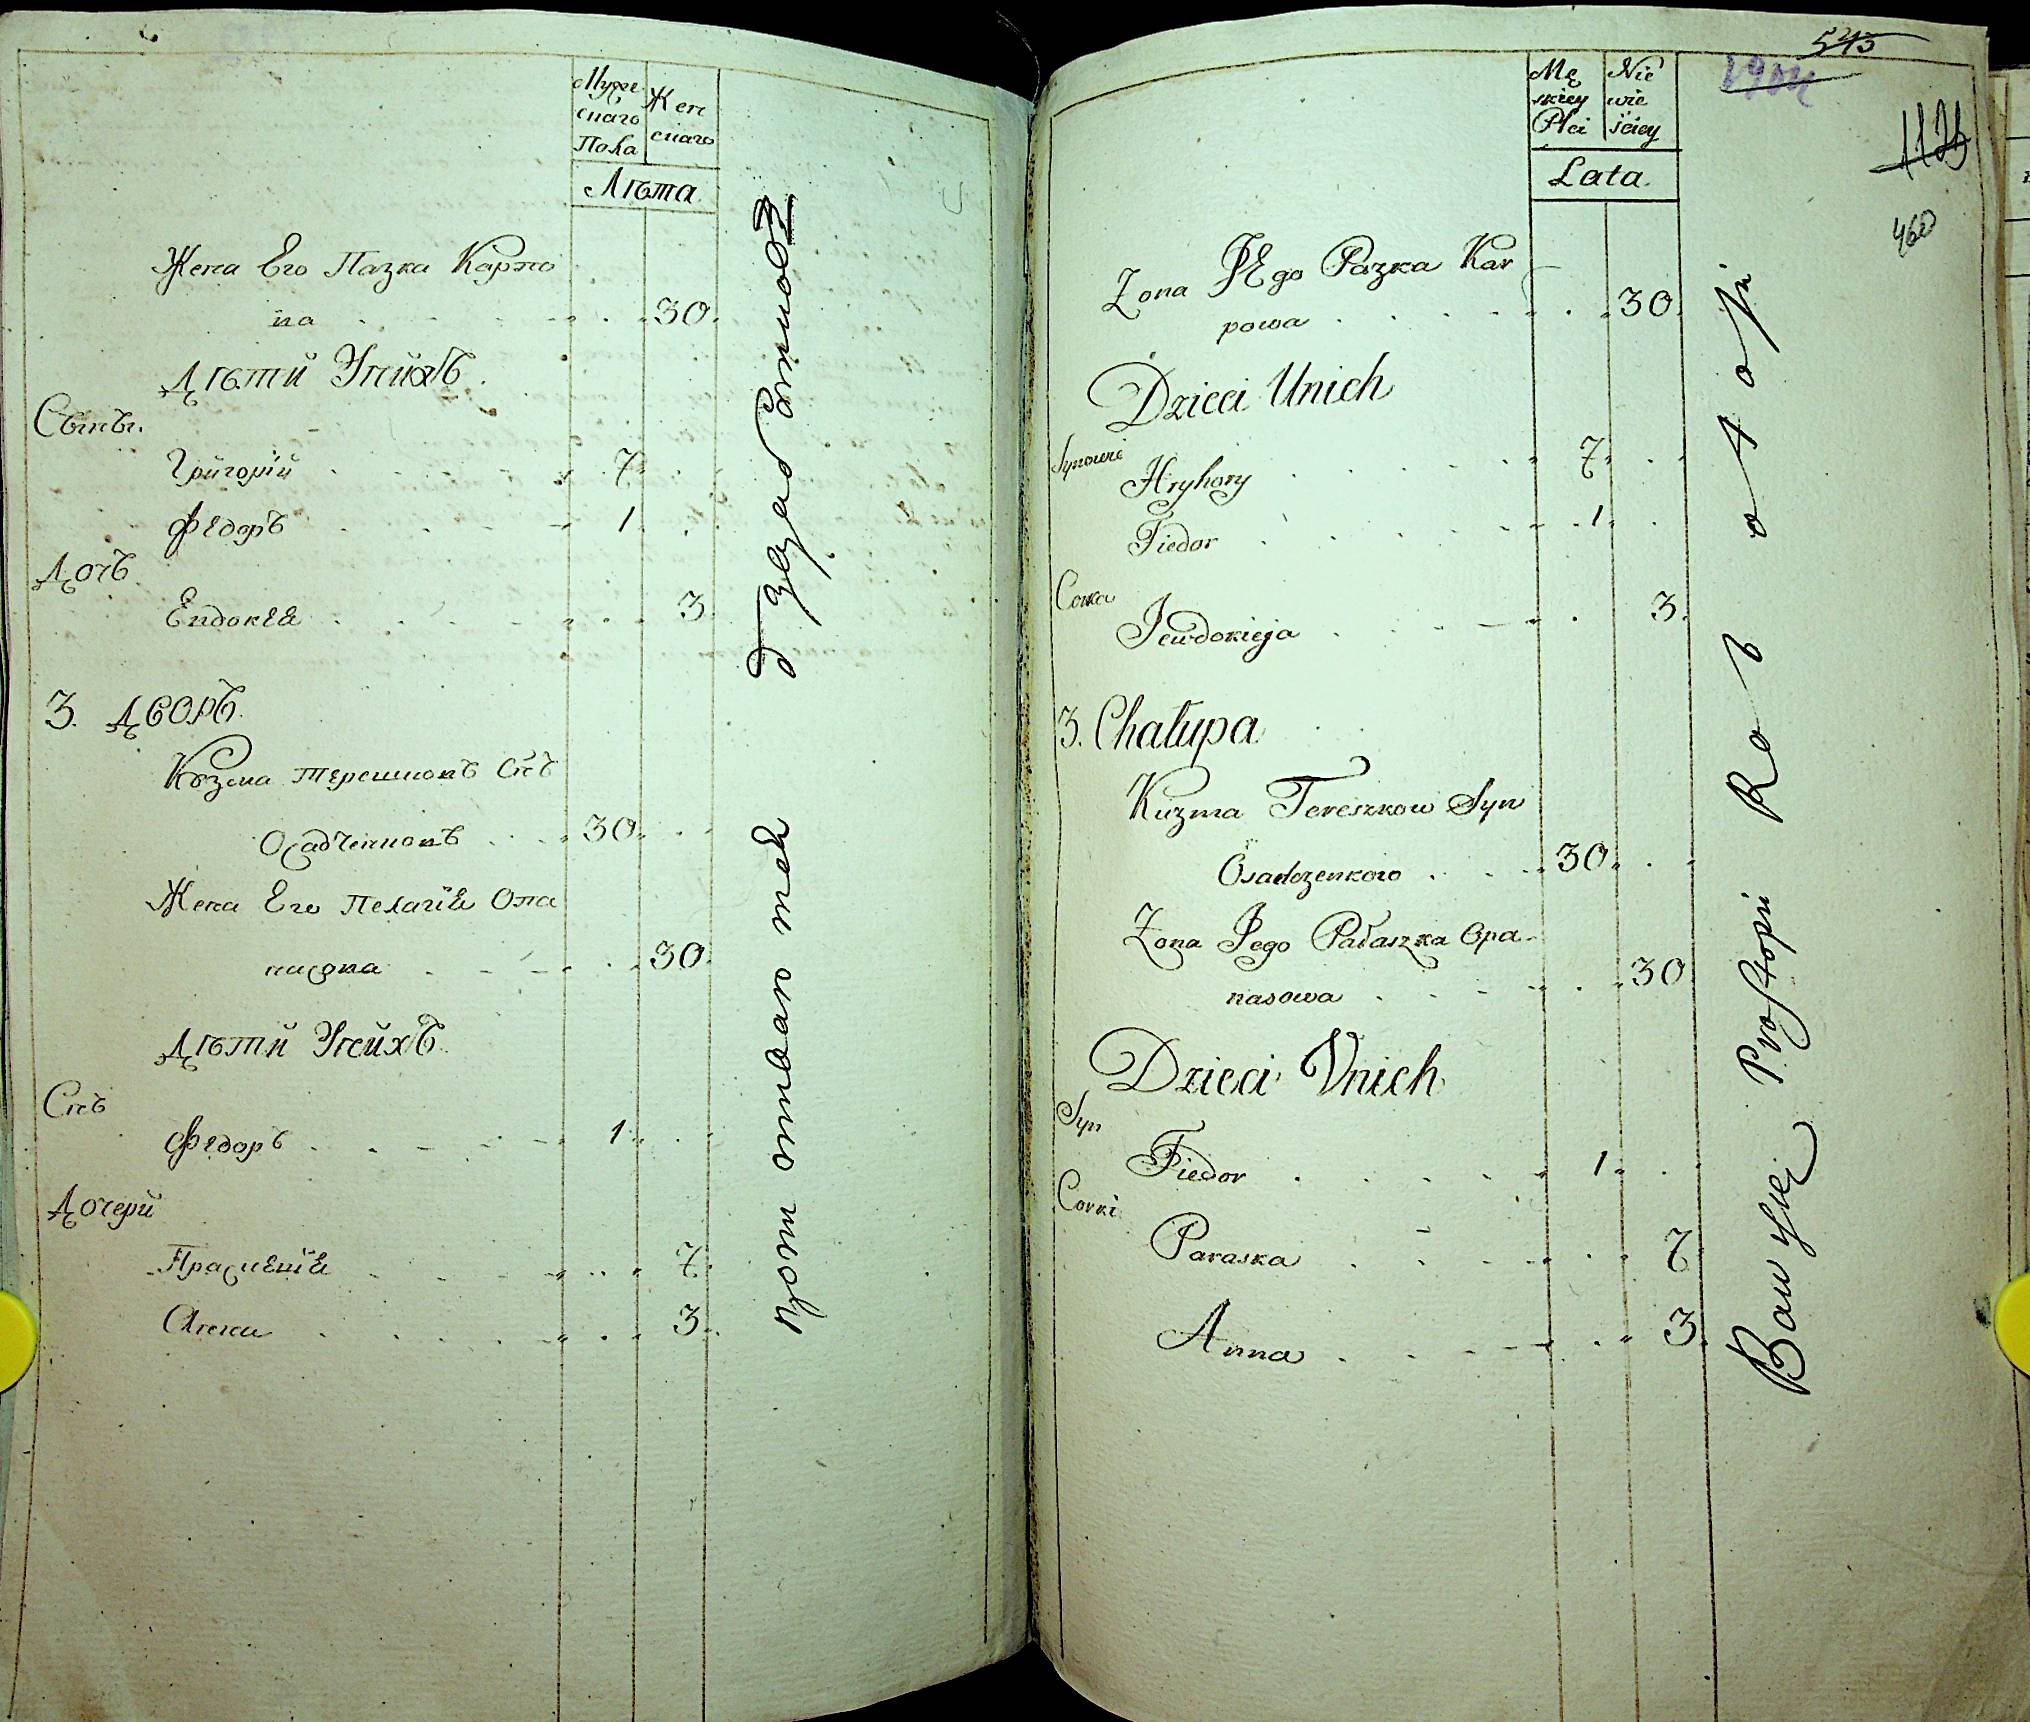 Мужескаго Пола
Женскаго
Лѣта
Жена Его Пазка Карпо
ва 30
Дѣти Унихъ
Сыны
Григорій 7
Федоръ 1
Дочь
Евдокея 3
3. Дворъ
Кузма Терешковъ Снъ
Осадченковъ 30
Жена Его Пелагія Опа
насова 30
Дѣти Унихъ
Снъ
Федоръ 1
Дочери
Прасковія 7
Анна 3
543
1126
460
Mę
skiey
Płci
Nie
wie
ściey
Lata
Żona JEgo Pazka Kar
powa 30
Dzieci Unich
Synowie
Hryhory 7
Fiedor 1
Corka
Jewdokieja 3
3. Chałupa
Kuzma Tereszkow Syn
Osadczenkoro 30
Żona Jego Pałaszka Opa-
nasowa 30
Dzieci Vnich
Syn
Fiedor 1
Corki
Paraska 7
Anna 3